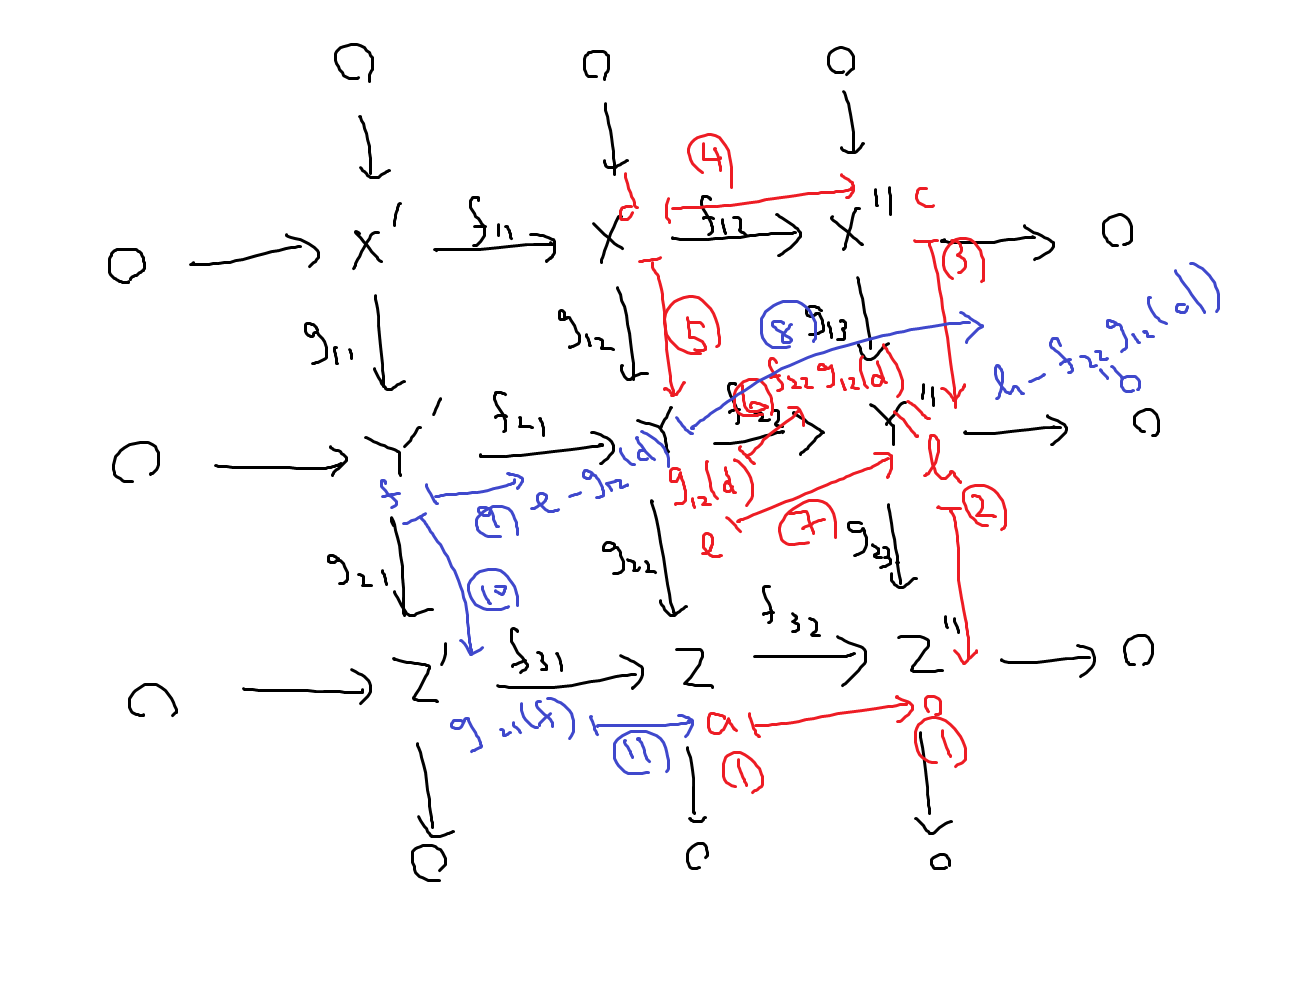 0 0 0
④
d c
0 X' f₁₁ X f₁₂ X'' 0
③
g₁₁ g₁₂ ⑤ ⑧ g₁₃
h - f₂₂g₁₂(d)
⑥ f₂₂g₁₂(d) 0
0 Y' f₂₁ Y f₂₂ Y'' 0
f e - g₁₂(d) g₁₂(d) h
⑨ e ⑦ ②
g₂₁ g₂₂ g₂₃
⑩
0 Z' f₃₁ Z f₃₂ Z'' 0
g₂₁(f) a 0
⑪ ① ①
0 0 0